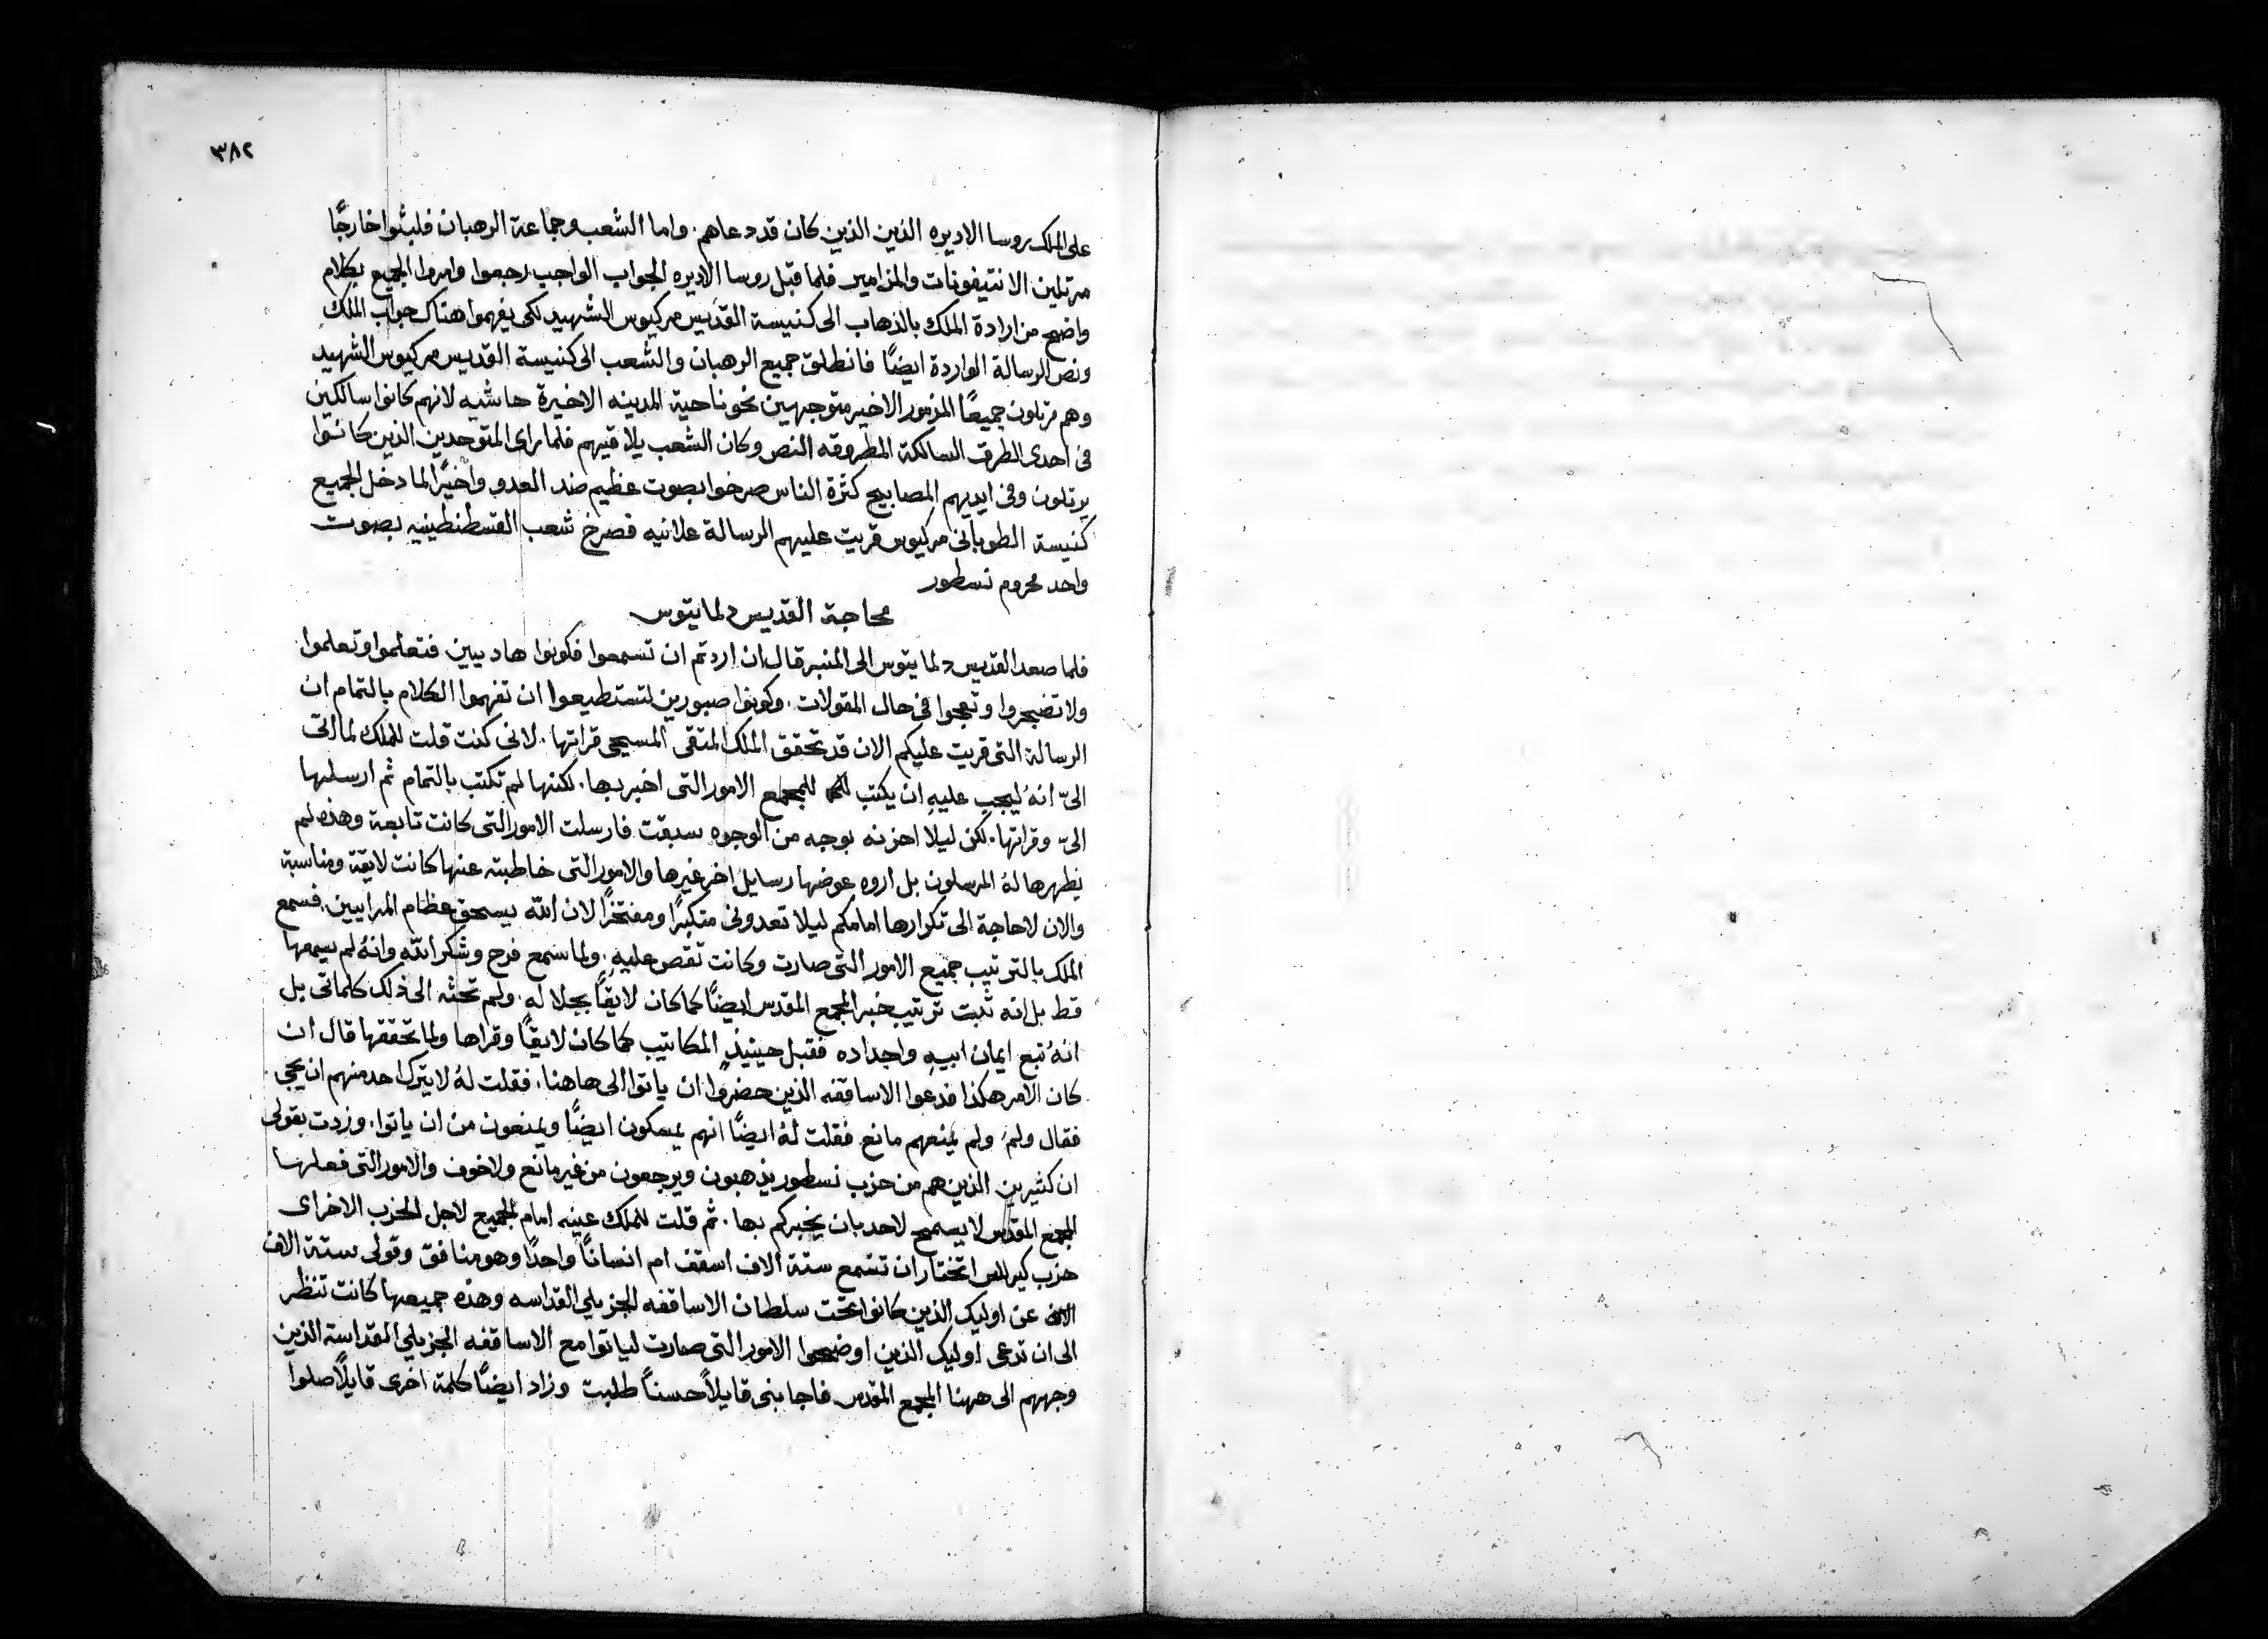 ٣٨٢
على الملك روسا الاديره الذين الذين كان قد دعاهم. واما الشعب وجماعة الرهبان فلبثوا خارجًا
مرتلين الانتيفونات والمزامير فلما قبل روسا الاديره الجواب الواجب رجعوا وامروا الجميع بكلام
واضح من ارادة الملك بالذهاب الى كنيسة القديس مركيوس الشهيد لكى يفهموا هناك جواب الملك
ونص الرسالة الواردة ايضًا فانطلق جميع الرهبان والشعب الى كنيسة القديس مركيوس الشهيد
وهم مرتلون جميعًا المزمور الاخير متوجهين نحو ناحية المدينه الاخيرة حاشيه لانهم كانوا سالكين
فى احدى الطرق السالكة المطروقه النص وكان الشعب يلاقيهم فلما راى المتوحدين الذين كانوا
يرتلون وفى ايديهم المصابيح كثرة الناس صرخوا بصوت عظيم ضد العدو واخيرًا لما دخل الجميع
كنيسة الطوبانى مركيوس قريت عليهم الرسالة علانيه فصرخ شعب القسطنطينيه بصوت
واحد محروم نسطور
محاجة القديس دلمايتوس
فلما صعد القديس دلمايتوس الى المنبر قال ان اردتم ان تسمعوا فكونوا هاديين فتعلموا وتعلموا
ولا تضجروا وتعجوا فى حال المقولات. وكونوا صبورين لتستطيعوا ان تفهموا الكلام بالتمام ان
الرسالة التى قريت عليكم الان قد تحقق الملك المتقى المسيحى قراتها. لانى كنت قلت للملك لما اتى
الىّ انهُ ليجب عليهِ ان يكتب للمجمع الامور التى اخبر بها. لكنها لم تكتب بالتمام ثم ارسلها
الىّ وقراتها. لكن ليلا احزنه بوجه من الوجوه سبقت فارسلت الامور التى كانت تابعة وهذه لم
يظهرها لهُ المرسلون بل اروه عوضها رسايل اخر غيرها والامور التى خاطبته عنها كانت لايقة ومناسبة
والان لا حاجة الى تكرارها امامكم ليلا تعدونى متكبرًا ومفتخرًا لان الله يسحق عظام المرايين. فسمع
الملك بالترتيب جميع الامور التى صارت وكانت تقص عليهِ. ولما سمع فرح وشكر الله وانهُ لم يسمعها
قط بل انه ثبت ترتيب خبر المجمع المقدس ايضًا كما كان لايقًا بجلالهِ. ولم تحثه الى ذلك كلماتى بل
انهُ تبع ايمان ابيهِ واجداده فقبل حينيذٍ المكاتيب كما كان لايقًا وقراها ولما تحققها قال ان
كان الامر هكذا فدعوا الاساقفه الذين حضروا ان ياتوا الى هاهنا. فقلت لهُ لا يترك احد منهم ان يجى
فقال ولمَ ولم يمنعهم مانع فقلت لهُ ايضًا انهم يمسكون ايضًا ويمنعون من ان ياتوا. وزدت بقولى
ان كثيرين الذين هم من حزب نسطور يذهبون ويرجعون من غير مانع ولا خوف والامور التى فعلها
المجمع المقدس لا يسمح لاحد بان يخبركم بها. ثم قلت للملك عينه امام الجميع لاجل الحزب الاخر اى
حزب كيرللس اتختار ان تسمع ستة الاف اسقف ام انسانًا واحدًا وهو منافق وقولى ستة الاف
عن اوليك الذين كانوا تحت سلطان الاساقفه الجزيلي القداسه وهذه جميعها كانت تنظر
الى ان تدعى اوليك الذين اوضحوا الامور التى صارت لياتوا مع الاساقفه الجزيلي القداسة الذين
وجههم الى ههنا المجمع المقدس فاجابنى قايلًا حسنًا طلبت وزاد ايضًا كلمة اخرى قايلًا صلوا